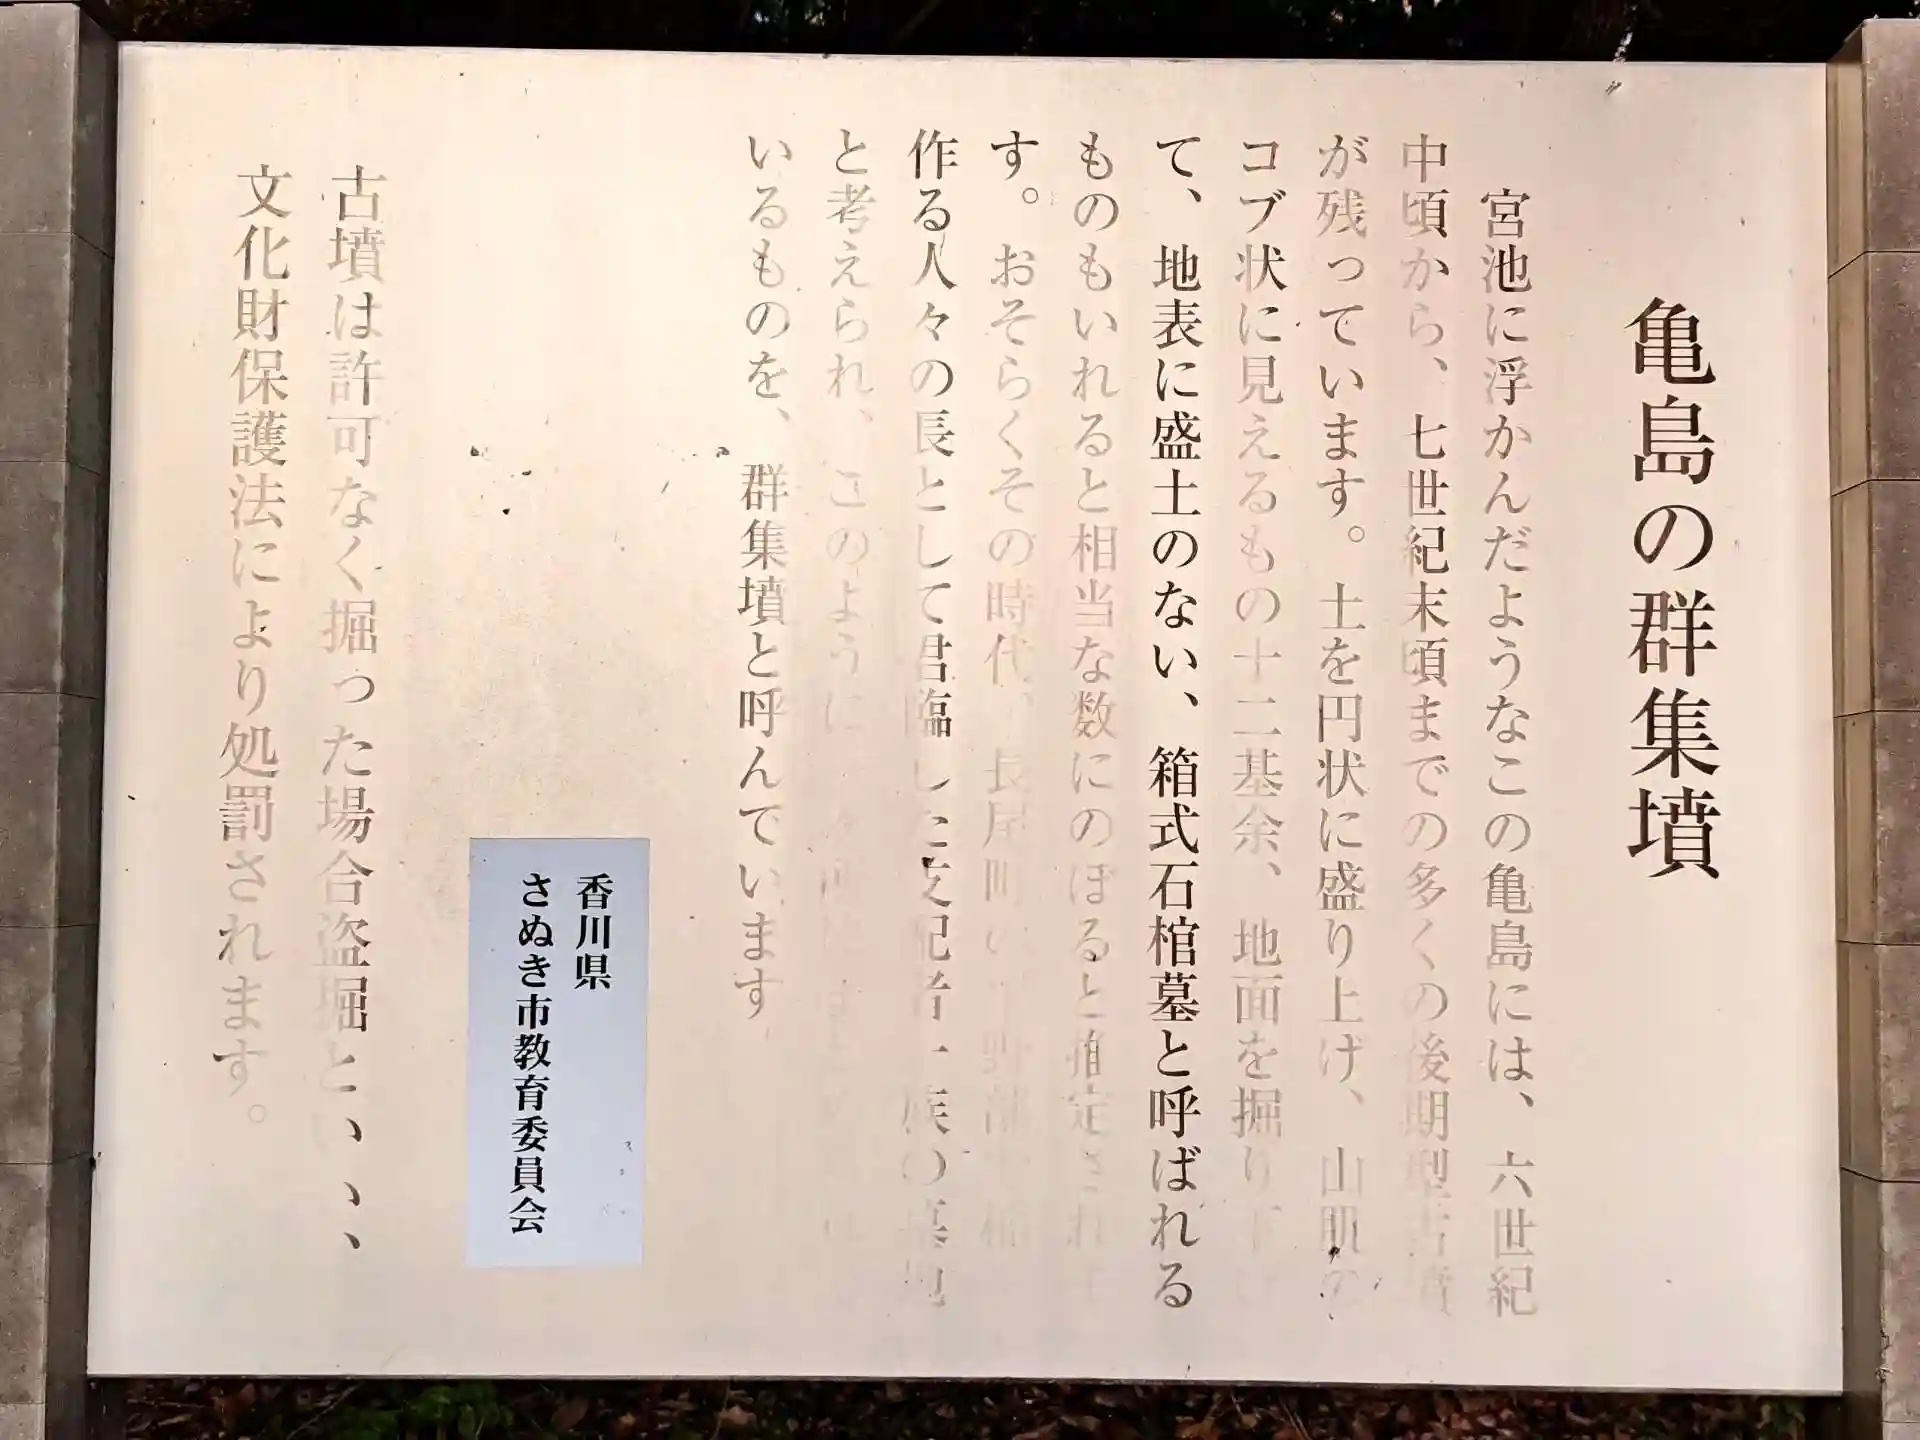 亀島の群集墳
宮池に浮かんだようなこの亀島には、六世紀
中頃から、七世紀末頃までの多くの後期型古墳
が残っています。土を円状に盛り上げ、山肌の
コブ状に見えるもの十二基余、地面を掘り下げ
て、地表に盛土のない、箱式石棺墓と呼ばれる
ものもいれると相当な数にのぼると推定されま
す。おそらくその時代、長尾町の平野部で稲
作る人々の長として君臨した支配者一族の墓地
と考えられ、このように
いるものを、群集墳と呼んでいます
香川県
さぬき市教育委員会
古墳は許可なく掘った場合盗掘といい、、、
文化財保護法により処罰されます。